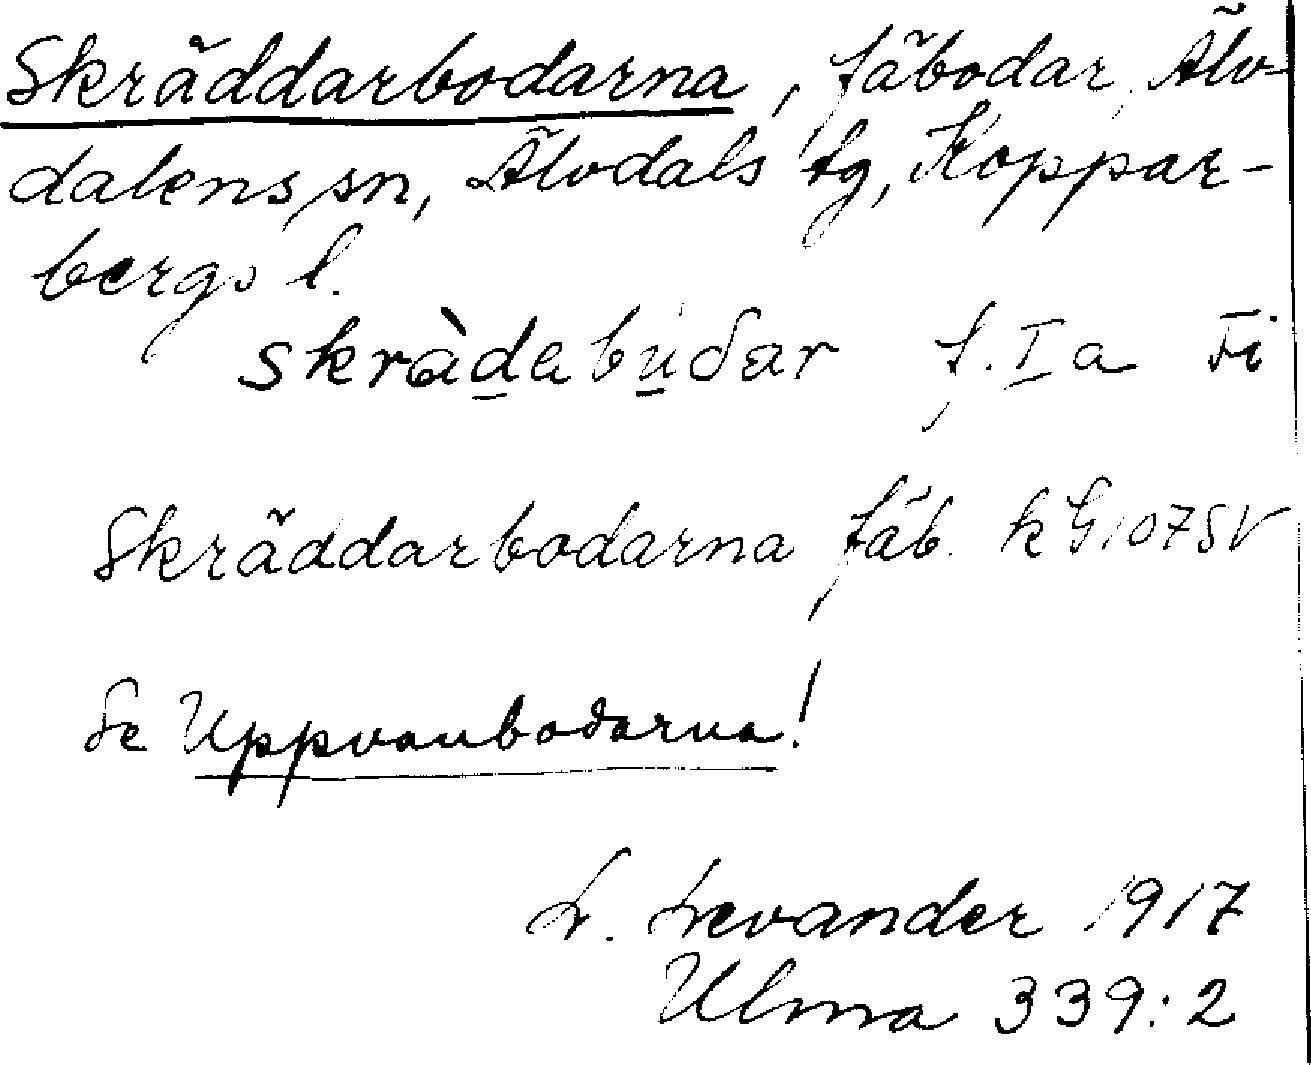 Skräddarbodarna, fäbodar, Älv-
dalens sn, Älvdals tg, Koppar-
bergs l.
skràdabuðar f. I a Fi
Skräddarbodarna fäb. k G 107 SV
Se Uppvanbodarna!
L. Levander 1917
Ulma 339:2